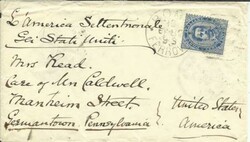 L'America Settentrionale
Gei Stati Uniti
Mrs Read.
Care of Mr Caldwell.
Manheim Street.
Germantown, Pennsylvania
United States
America